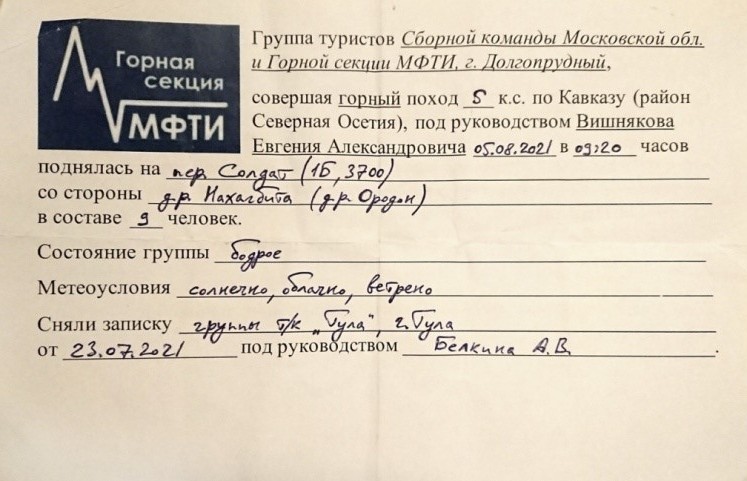 Горная
секция
МФТИ
Группа туристов Сборной команды Московской обл.
и Горной секции МФТИ, г. Долгопрудный,
совершая горный поход 5 к.с. по Кавказу (район
Северная Осетия), под руководством Вишнякова
Евгения Александровича 05.08.2021 в 09:20 часов
поднялась на пер. Солдат (1Б, 3700)
со стороны д.р. Нахагбита (д.р. Ородон)
в составе 9 человек.
Состояние группы бодрое
Метеоусловия солнечно, облачно, ветрено
Сняли записку группы т/к „Тула", г. Тула
от 23.07.2021 под руководством Белкина А.В.